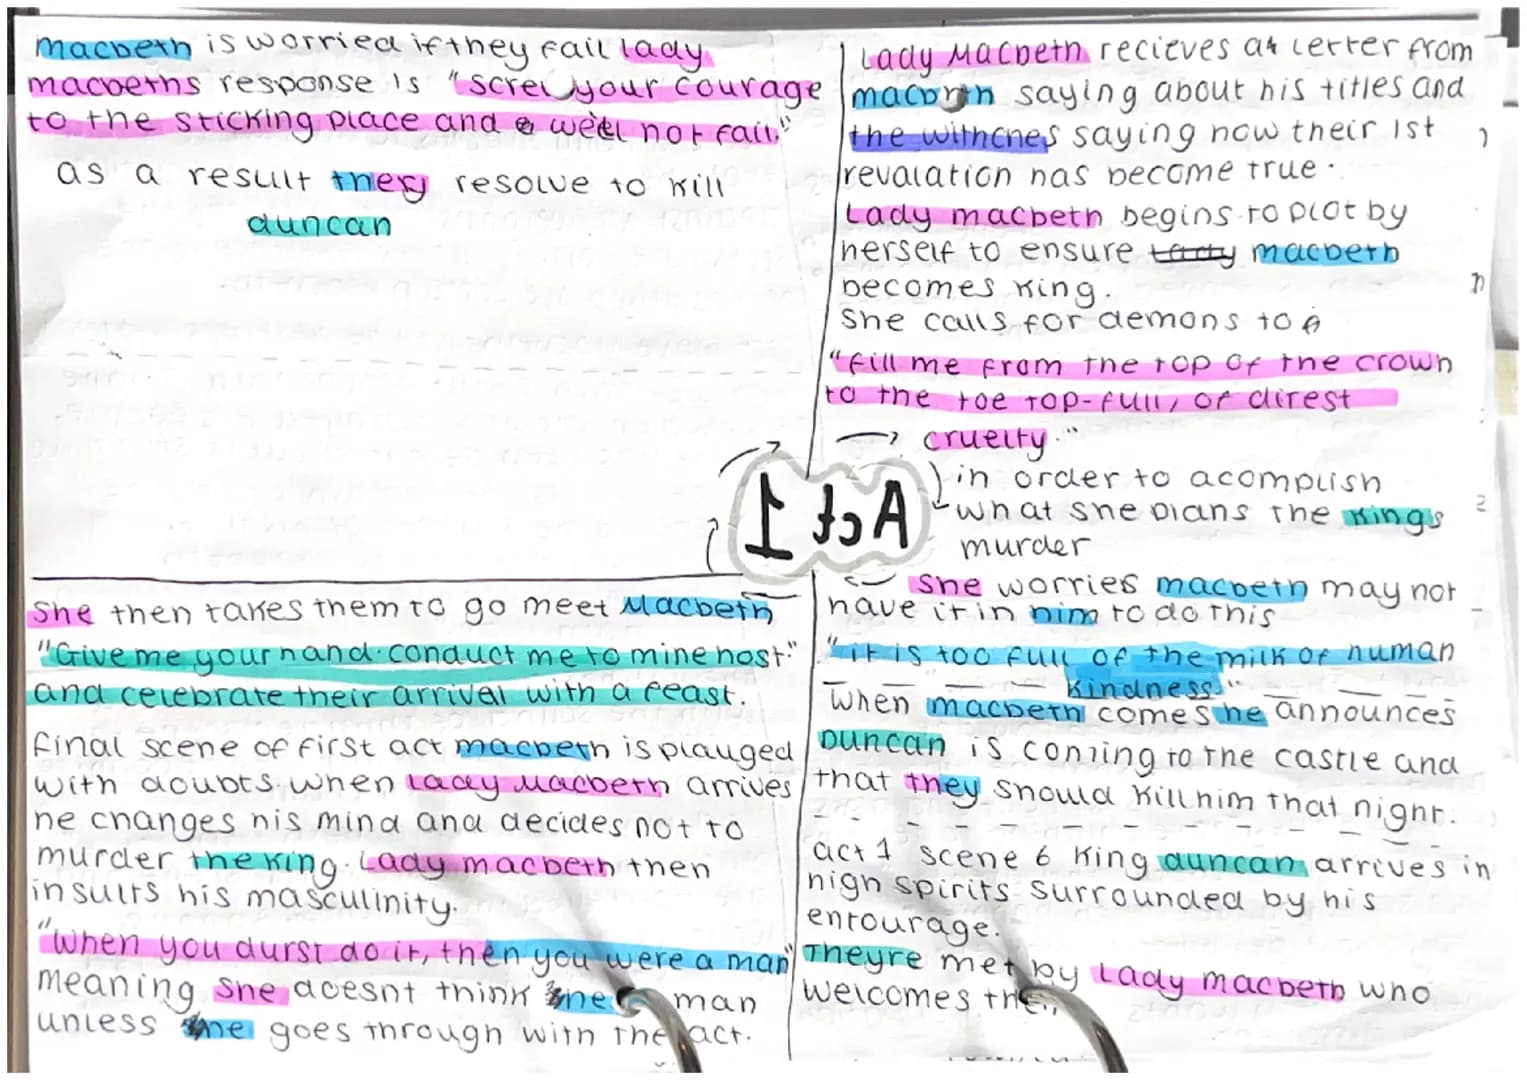 Macbeth is worried if they fail lady
macbeths response is "screw your courage
to the sticking place and we'll not fail."
as a result they resolve to kill
duncan
Lady Macbeth recieves a letter from
macbeth saying about his titles and
the withches saying how their 1st
revalation has become true.
Lady macbeth begins to plot by
herself to ensure lady macbeth
becomes king.
She calls for demons to
"fill me from the top of the crown
to the toe top-full, of direst
→ cruelty."
in order to acomplish
what she plans the kings
murder
Act 1
She worries macbeth may not
have it in him to do this
"it is too full of the milk of human
kindness"
When macbeth comes he announces
Duncan is coming to the castle and
that they should kill him that night.
act 1 scene 6 King duncan arrives in
high spirits surrounded by his
entourage.
Theyre met by Lady macbeth who
welcomes
She then takes them to go meet Macbeth
"Give me your hand. conduct me to mine host"
and celebrate their arrival with a feast.
final scene of first act macbeth is plauged
with doubts. when Lady Macbeth arrives
he changes his mind and decides not to
murder the king. Lady macbeth then
insults his masculinity.
"when you durst do it, then you were a man"
meaning she doesnt think he man
unless he goes through with the act.